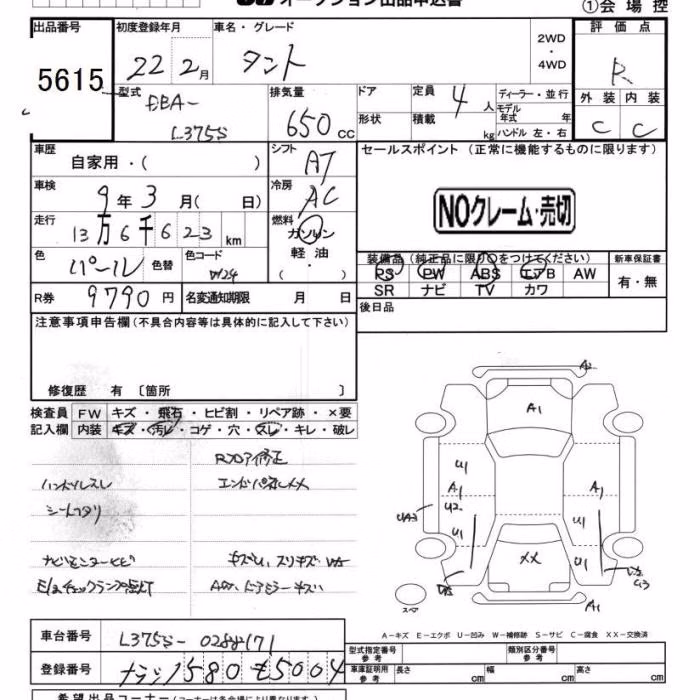 オークション出品申込書
①会場控
出品番号 初度登録年月 車名・グレード 2WD ・ 4WD 評価点
5615 22 2月 タント R
型式 DBA- L375S 排気量 650cc ドア 定員 4人 ディーラー・並行
形状 積載 kg モデル年式 年 ハンドル 左・右
外装 内装
C C
車歴 自家用・( ) シフト AT セールスポイント (正常に機能するものに限ります)
車検 9年3月(日) 冷房 AC NOクレーム・売切
走行 13万6千623km 燃料 ガソリン
軽油
・( )
色 パール 色替 色コード W24
装備品(純正品に限り○をつけてください) 新車保証書
PS PW ABS エアB AW 有・無
SR ナビ TV カワ
R券 9790円 名変通知期限 月 日 後日品
注意事項申告欄(不具合内容等は具体的に記入して下さい)
修復歴 有 〔箇所 〕
検査員 FW キズ・飛石・ヒビ割・リペア跡・×要
記入欄 内装 キズ・汚レ・コゲ・穴・スレ・キレ・破レ
ハンドルスレ
シートヘタリ
ナビモニターヒビ
E/gチェックランプ点灯
A2
A1
U1
A1
U2
U1
UA3
A1
U1
U1
XX
A1
スペア
A-キズ E-エクボ U-凹み W-補修跡 S-サビ C-腐食 XX-交換済
車台番号 L375S-0288171
型式指定番号 参考 類別区分番号 参考
登録番号 ナラ 1580 も5004
車庫証明用 参考 長さ cm 幅 cm 高さ cm
希望出品コーナー